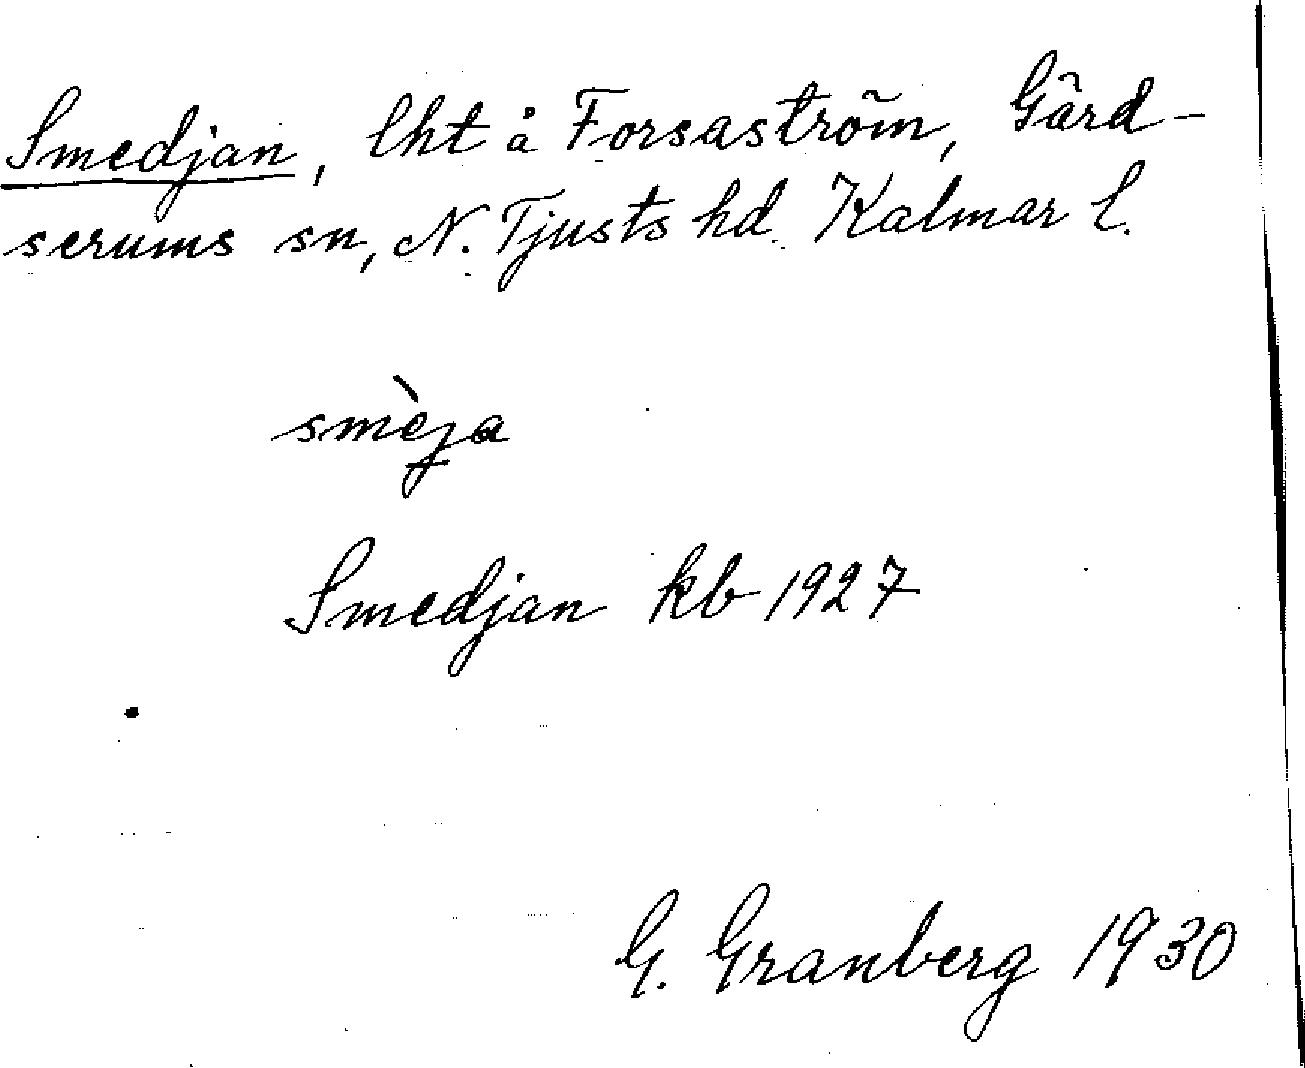 Smedjan, lht å Forsaström, Gärd-
serums sn, N. Tjusts hd. Kalmar l.
smèja
Smedjan kb 1927
G. Granberg 1930